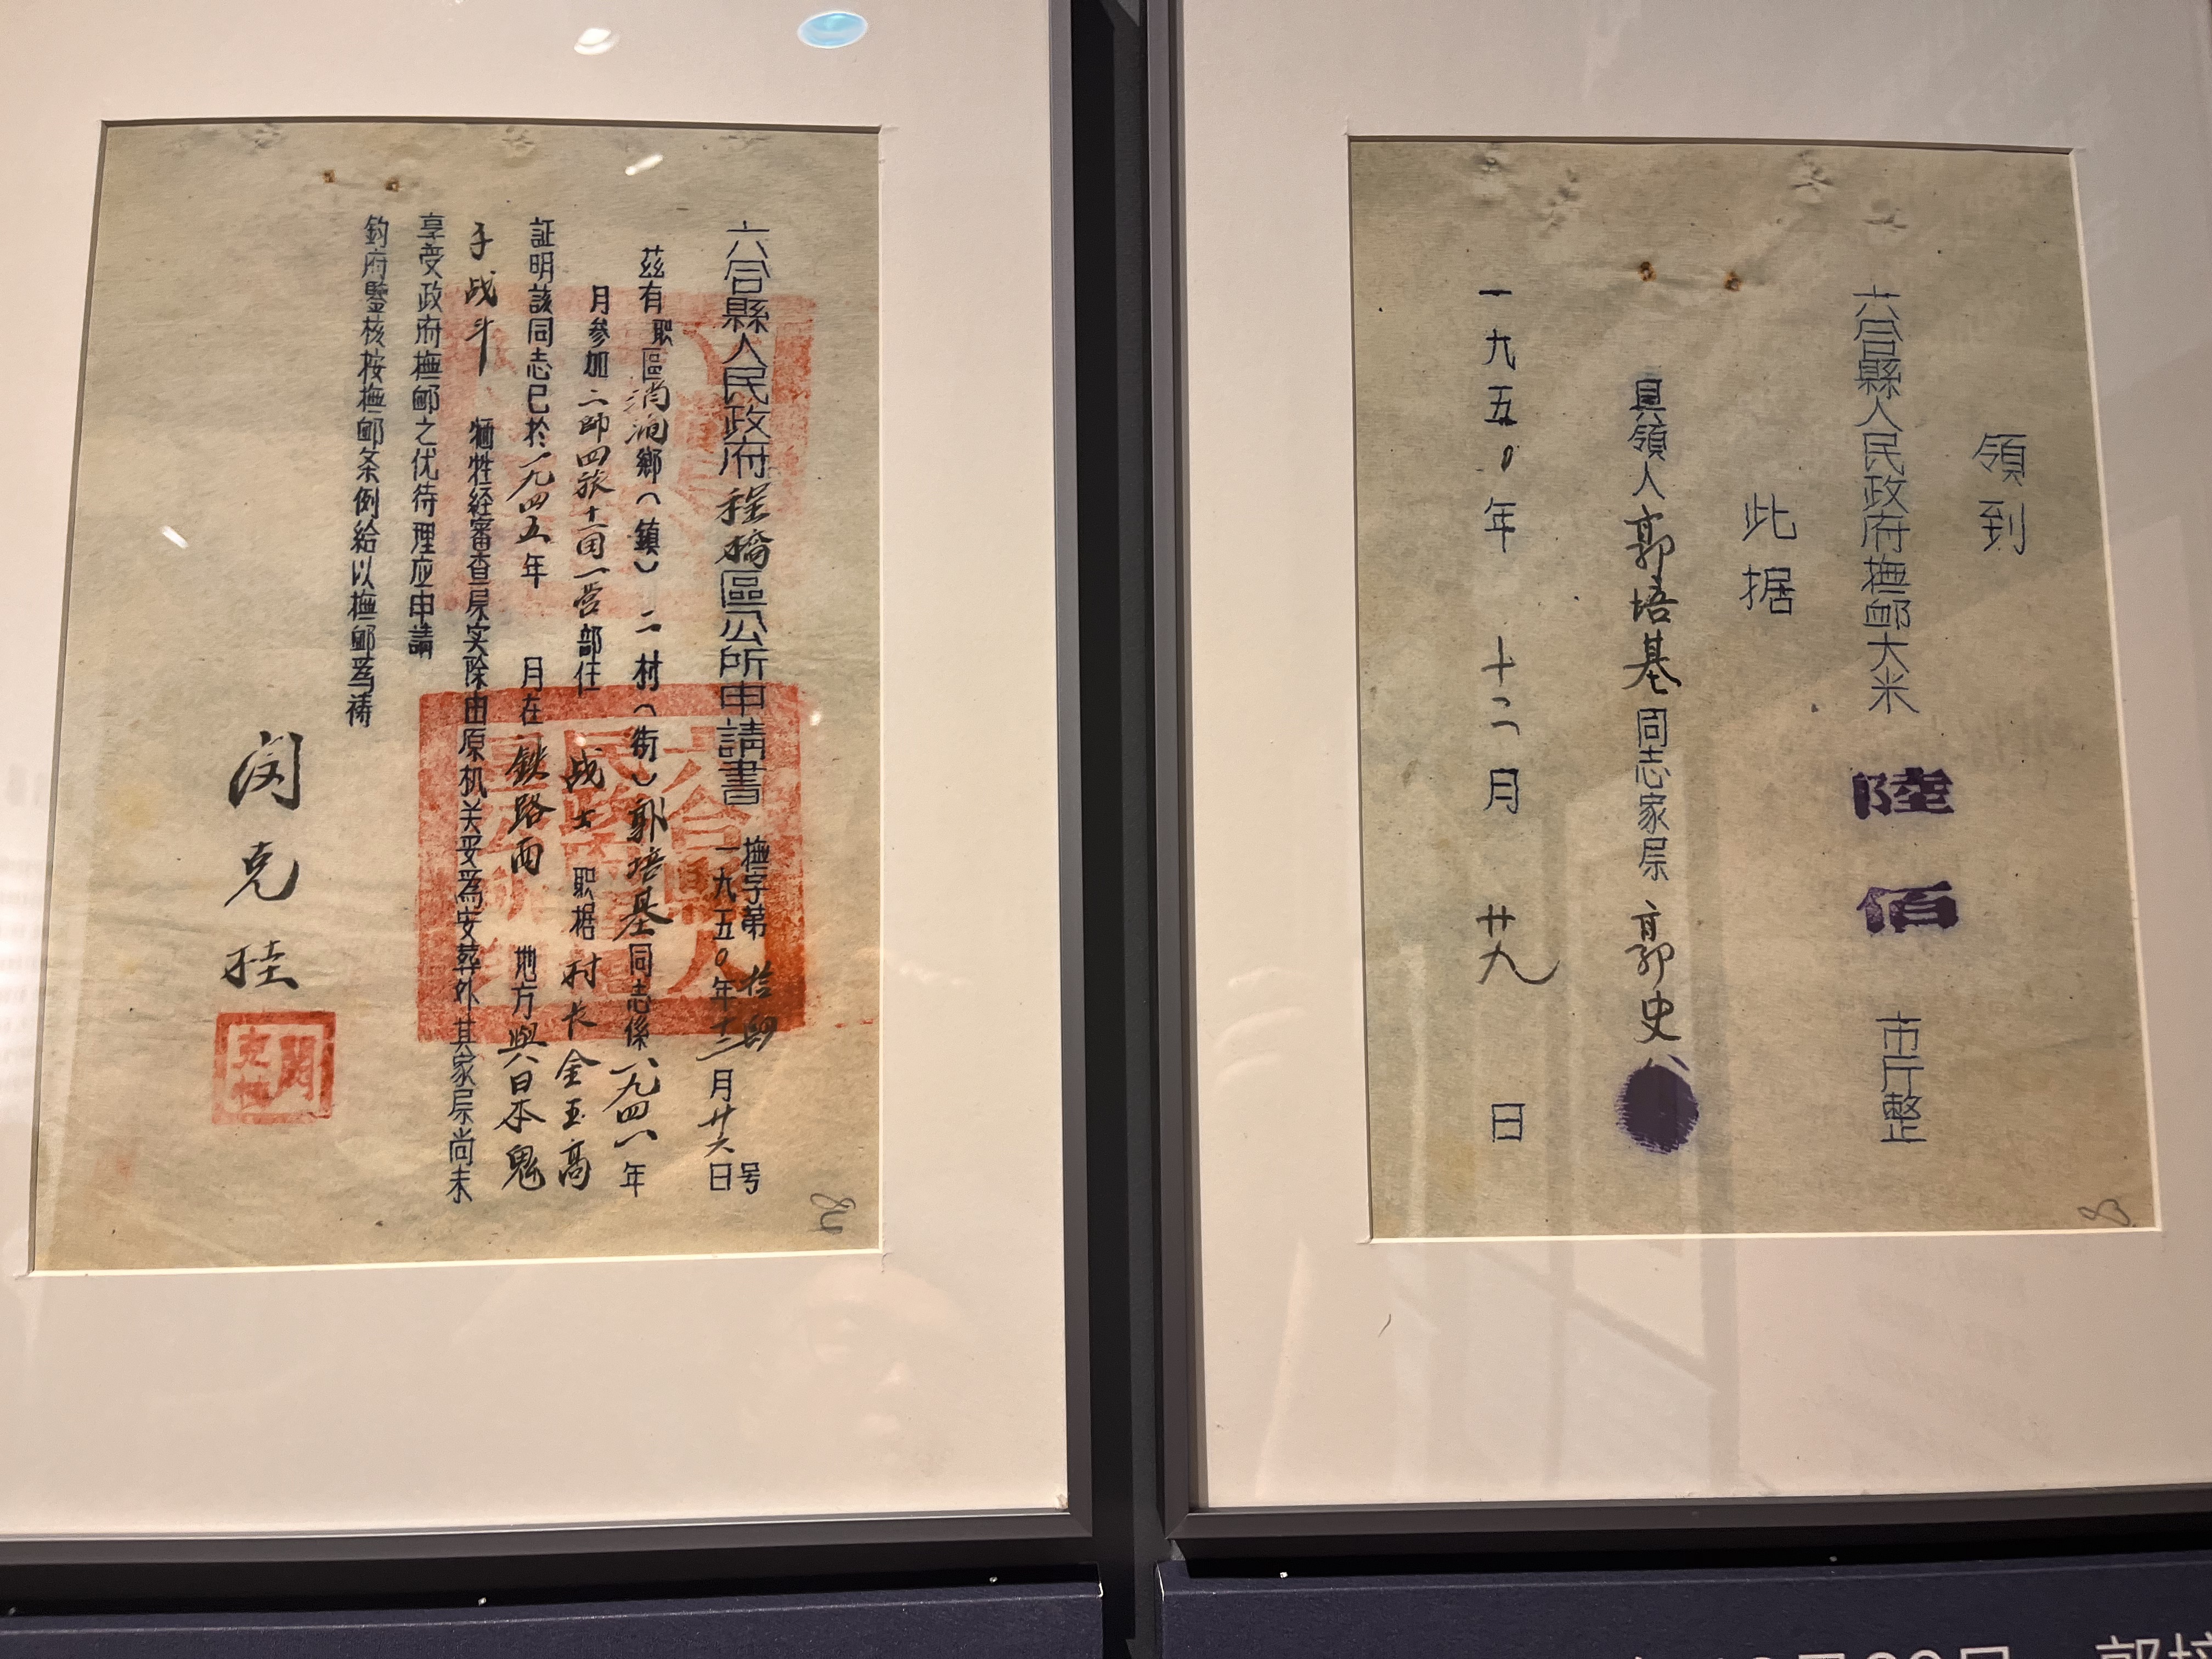 六合縣人民政府程橋區公所申請書
撫字第 拾 号
一九五〇年十二月廿六日
茲有职區消涧鄉（鎮）二村（街）郭培基同志係一九四一年
月参加二師四旅十一团一营部任 战士 职据村长金玉高
証明該同志已於一九四五年 月在鉄路西 地方與日本鬼
子战斗 犧牲経審查属实除由原机关妥為安葬外其家属尚未
享受政府撫邺之优待理应申請
鈞府鑒核按撫邺条例給以撫邺為祷
闵克
領到
六合縣人民政府撫邺大米 陸佰 市斤整
此据
具領人郭培基同志家属 郭史
一九五〇年 十二月 廿九 日